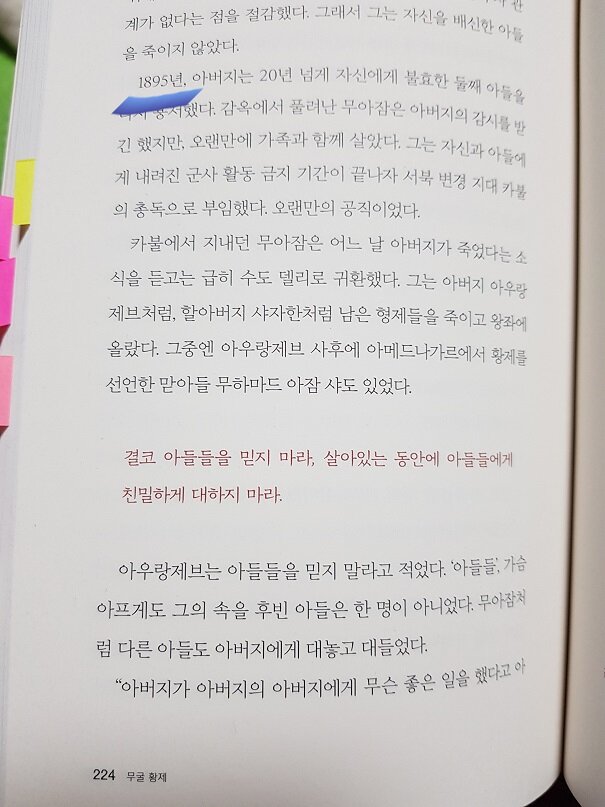 계가 없다는 점을 절감했다. 그래서 그는 자신을 배신한 아들
을 죽이지 않았다.
1895년, 아버지는 20년 넘게 자신에게 불효한 둘째 아들을
용서했다. 감옥에서 풀려난 무아잠은 아버지의 감시를 받
긴 했지만, 오랜만에 가족과 함께 살았다. 그는 자신과 아들에
게 내려진 군사 활동 금지 기간이 끝나자 서북 변경 지대 카불
의 총독으로 부임했다. 오랜만의 공직이었다.
카불에서 지내던 무아잠은 어느 날 아버지가 죽었다는 소
식을 듣고는 급히 수도 델리로 귀환했다. 그는 아버지 아우랑
제브처럼, 할아버지 샤자한처럼 남은 형제들을 죽이고 왕좌에
올랐다. 그중엔 아우랑제브 사후에 아메드나가르에서 황제를
선언한 맏아들 무하마드 아잠 샤도 있었다.
결코 아들들을 믿지 마라, 살아있는 동안에 아들들에게
친밀하게 대하지 마라.
아우랑제브는 아들들을 믿지 말라고 적었다. ‘아들들’, 가슴
아프게도 그의 속을 후빈 아들은 한 명이 아니었다. 무아잠처
럼 다른 아들도 아버지에게 대놓고 대들었다.
“아버지가 아버지의 아버지에게 무슨 좋은 일을 했다고 아
224 무굴 황제